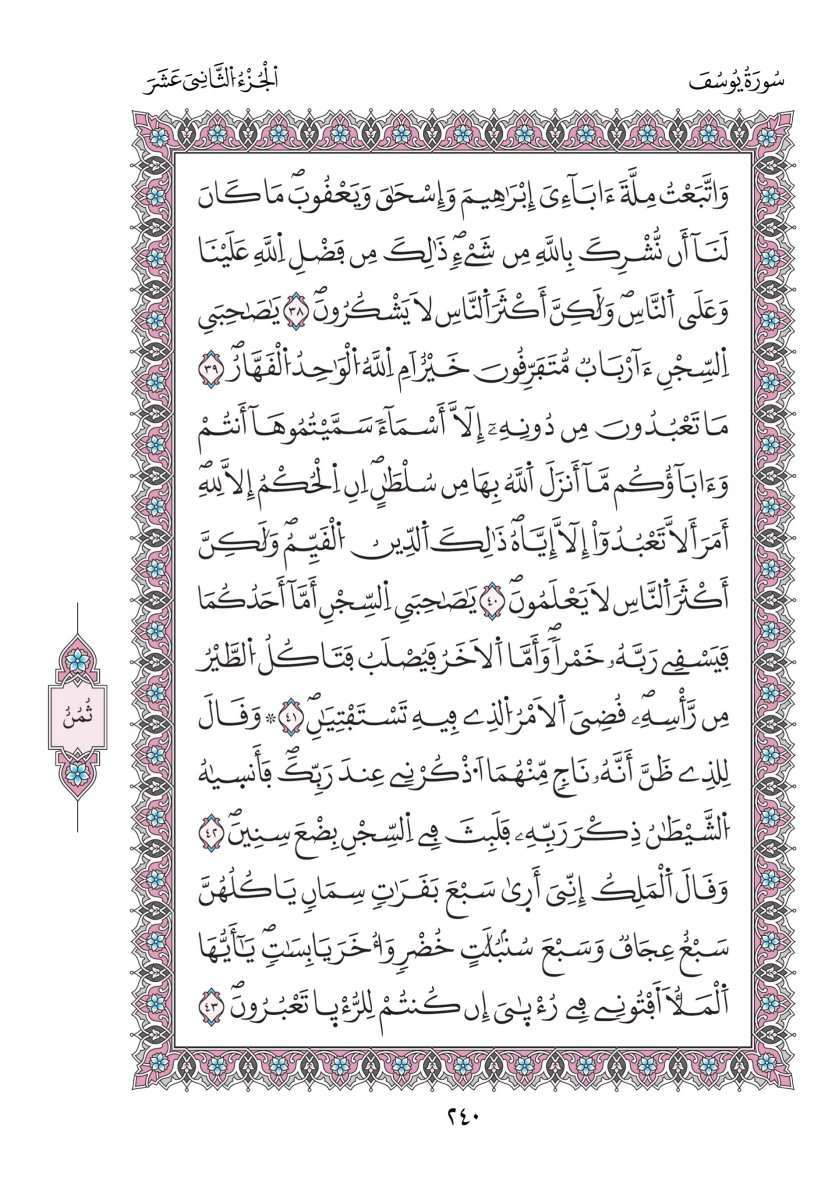 سُورَةُ يُوسُفَ
اَلْجُزْءُ الثَّانِيَ عَشَرَ
وَاتَّبَعْتُ مِلَّةَ ءَابَآءِيَ إِبْرَٰهِيمَ وَإِسْحَٰقَ وَيَعْقُوبَۖ مَا كَانَ
لَنَآ أَن نُّشْرِكَ بِاللَّهِ مِن شَيْءٖۖ ذَٰلِكَ مِن فَضْلِ اِللَّهِ عَلَيْنَا
وَعَلَى اَلنَّاسِۖ وَلَٰكِنَّ أَكْثَرَ اَلنَّاسِ لَا يَشْكُرُونَۖ ٣٨ يَٰصَٰحِبَيِ
اِلسِّجْنِ ءَآرْبَابٞ مُّتَفَرِّقُونَ خَيْرٌ اَمِ اِللَّهُ اُلْوَٰحِدُ اُلْقَهَّارُۖ ٣٩
مَا تَعْبُدُونَ مِن دُونِهِۦٓ إِلَّآ أَسْمَآءٗ سَمَّيْتُمُوهَآ أَنتُمْ
وَءَابَآؤُكُم مَّآ أَنزَلَ اَللَّهُ بِهَا مِن سُلْطَٰنٍۖ اِنِ اِلْحُكْمُ إِلَّا لِلهِۖ
أَمَرَ أَلَّا تَعْبُدُوٓاْ إِلَّآ إِيَّاهُۖ ذَٰلِكَ اَلدِّينُ اُلْقَيِّمُۖ وَلَٰكِنَّ
أَكْثَرَ اَلنَّاسِ لَا يَعْلَمُونَۖ ٤٠ يَٰصَٰحِبَيِ اِلسِّجْنِ أَمَّآ أَحَدُكُمَا
فَيَسْقِے رَبَّهُۥ خَمْراٗۖ وَأَمَّا اَلَاخَرُ فَيُصْلَبُ فَتَاكُلُ اُلطَّيْرُ
مِن رَّأْسِهِۦۖ قُضِيَ اَلَامْرُ اُلذِے فِيهِ تَسْتَفْتِيَٰنِۖ ٤١ ۞ وَقَالَ
لِلذِے ظَنَّ أَنَّهُۥ نَاجٖ مِّنْهُمَا اَ۟ذْكُرْنِے عِندَ رَبِّكَۖ فَأَنسِيٰهُ
اُلشَّيْطَٰنُ ذِكْرَ رَبِّهِۦ فَلَبِثَ فِے اِلسِّجْنِ بِضْعَ سِنِينَۖ ٤٢
وَقَالَ اَلْمَلِكُ إِنِّيَ أَرٜيٰ سَبْعَ بَقَرَٰتٖ سِمَانٖ يَاكُلُهُنَّ
سَبْعٌ عِجَافٞ وَسَبْعَ سُنۢبُلَٰتٍ خُضْرٖ وَأُخَرَ يَابِسَٰتٖۖ يَٰٓأَيُّهَا
اَلْمَلَأُ اَفْتُونِے فِے رُءْيَٰيَ إِن كُنتُمْ لِلرُّءْيَا تَعْبُرُونَۖ ٤٣
ثُمُنُ
٢٤٠